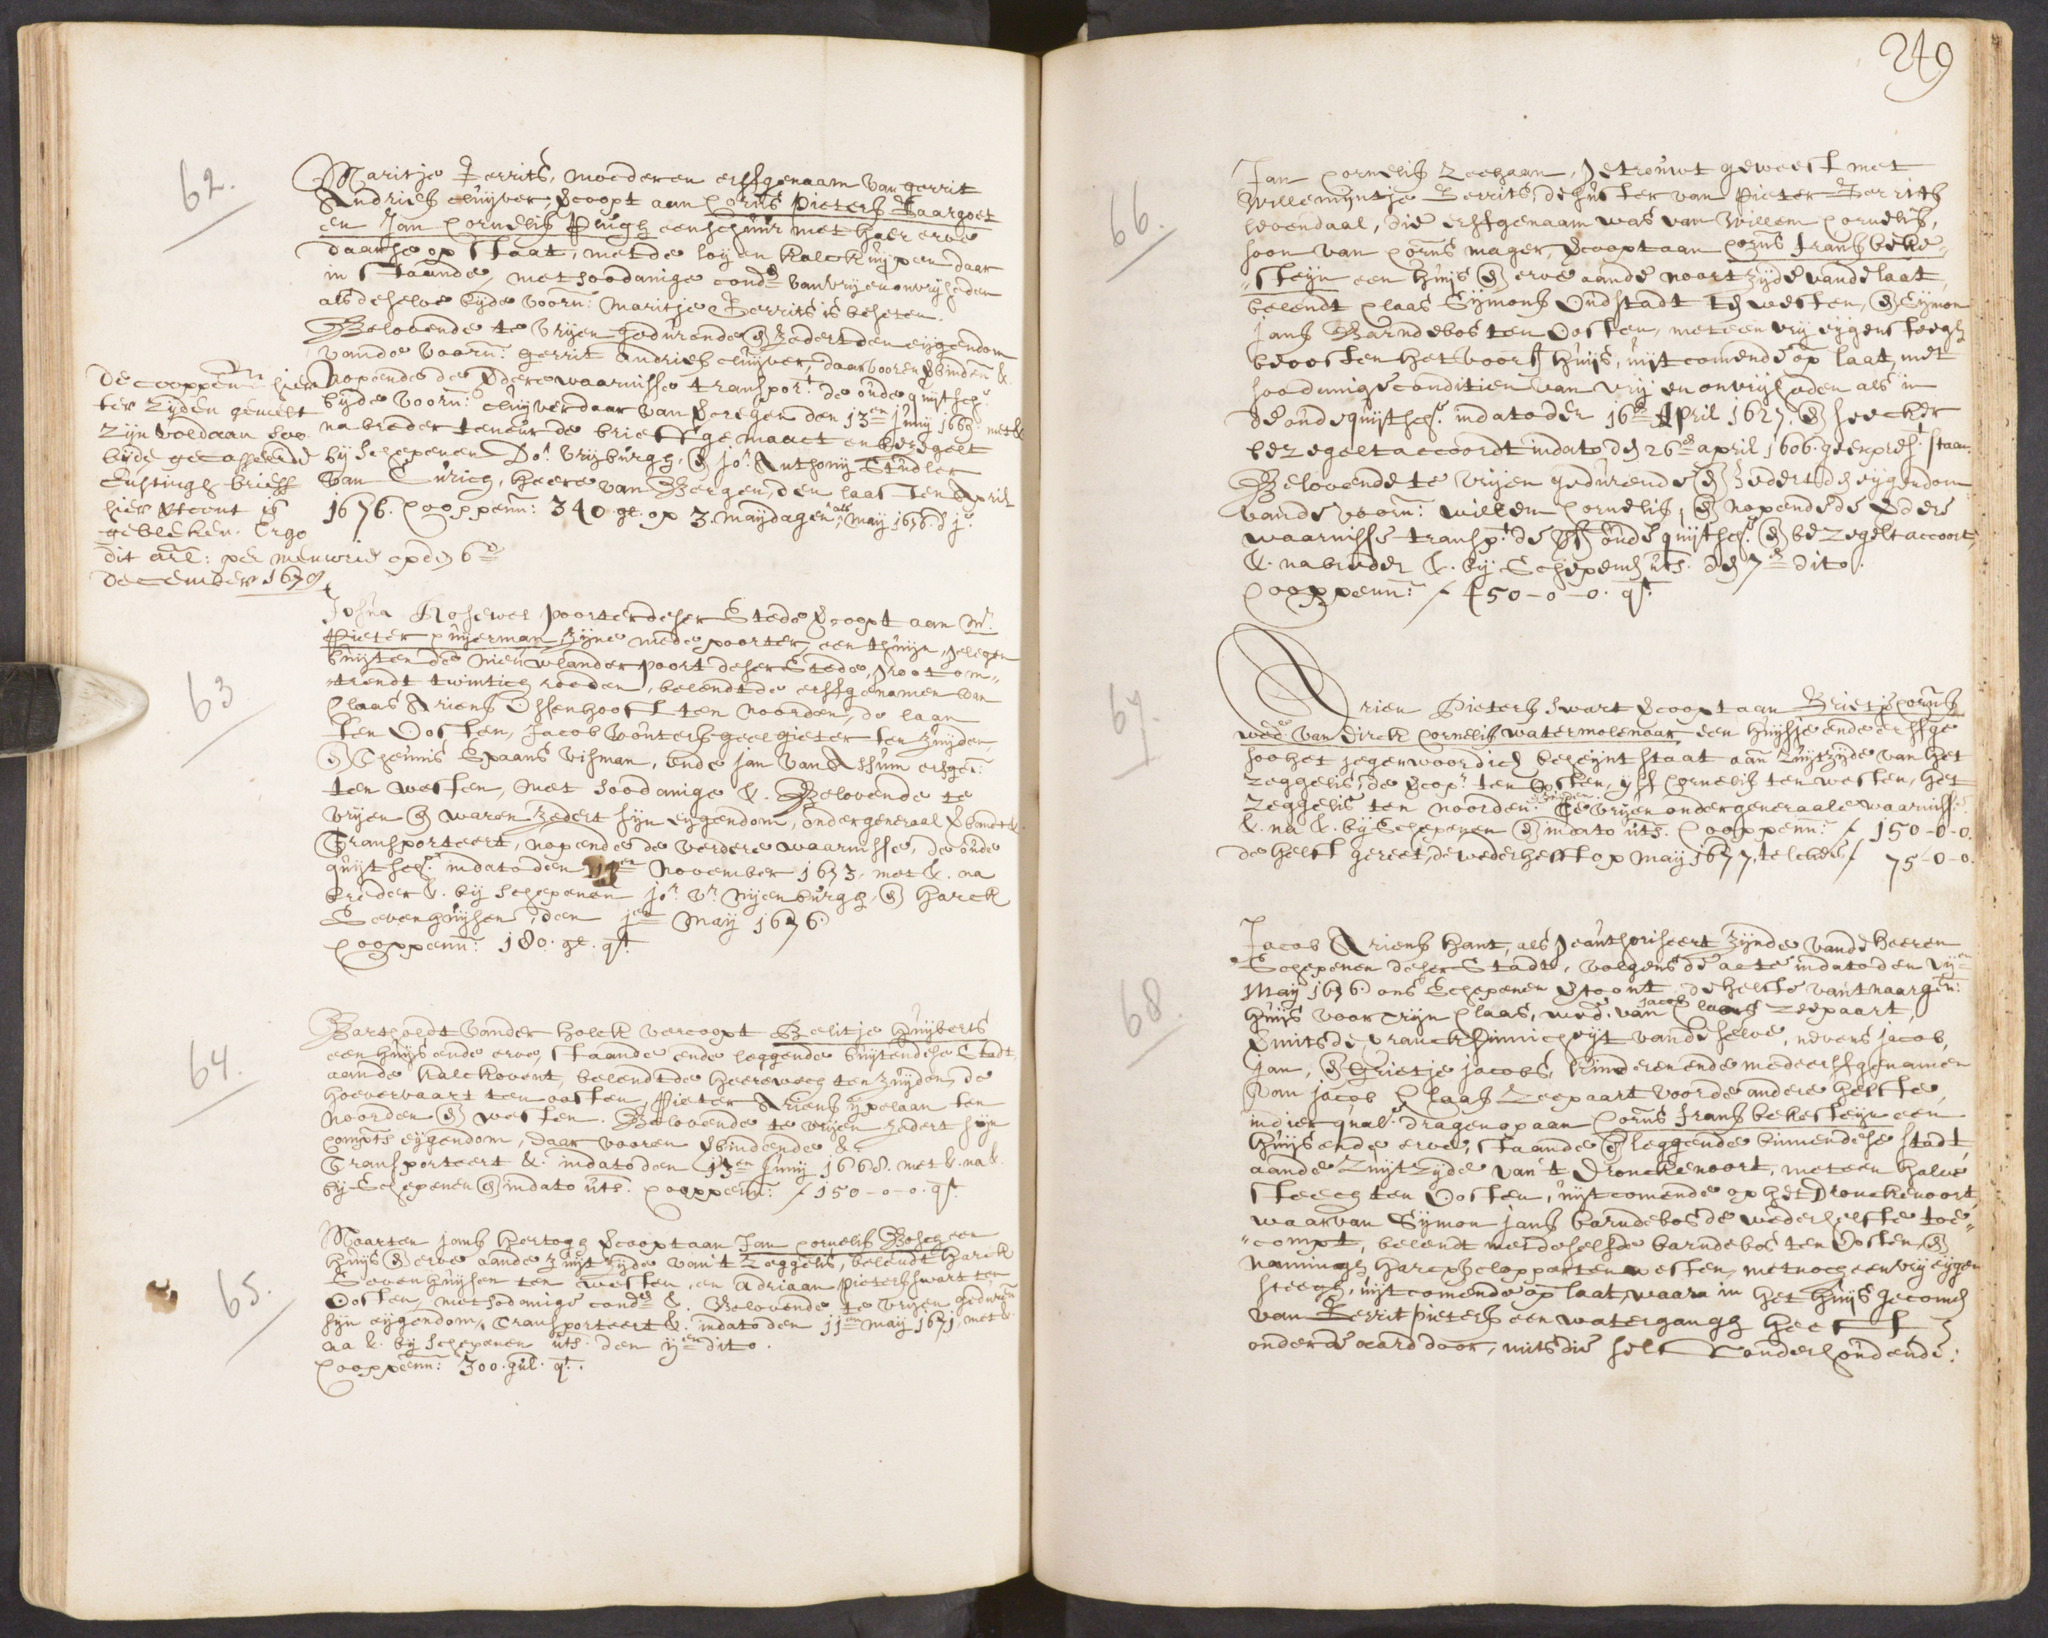 62.
Maritje Gerrits, moeder en erffgenaam van gerrit
Andriesz cluijver, vercoopt aan Corns Pietersz Baargoet
en Jan Cornelisz Plugh een schuur met haer erve
daarse op staat, met de loij en kalck kuijpen daar
in staande, met soodanige condn van vrij en onvrijheden
als deselve bijde voorn: Maritje Gerrits is beseten.
Belovende te vrijen geduirende en zedert den eijgendom
vande voorn: gerrit andriesz cluijver, daar vooren verbinden &.
Nopende de vdere waarnisse transport de oude quijtsch.
bijde voorn: cluijver daar van vcregen den 13en Junij 1668. met &
na breder teneur de brieff gemaact en bezegelt
bij Schepenen Do. vrijburgh, en Jor. Anthonij Studler
van Zurich, heere van Bergen, den laasten April
1676. Cooppenn: 340. gl. op 3. maijdagen als maij 1676. d j.
De cooppenn hier
ter zijden gemelt
zijn voldaan soo
bijde gecasseerde
Custingh brieff
hier vtoont is
gebleken. Ergo
dit art: per memorie opden 6en
December 1679
63
Josua Rosewel poorter deser Stede vcoopt aan Mr.
Pieter puijerman, zijne mede poorter, een thuijn, gelegen
buijten de nieuwlander poort deser Stede, groot om-
trendt twintich roeden, belendt de erffgenamen van
Claas Ariensz Ossenhooft ten noorden, de laan
ten Oosten, Jacob Woutersz geelgieter ten Zuijden,
en Theunis Spaans visman, ende jan van Assum erfgen:
ten westen, met soodanige &. Belovende te
vrijen en waren zedert sijn eijgendom, onder generaal vbandt &.
Transporteert, nopende de verdere waarnisse, de oude
quijtsch. in dato den en November 1673. met &. na
breder &. bij Schepenen jor. vr. Nijenburgh, en Harck
Sevenhuijsen, den jen Maij 1676.
Cooppenn: 180. gl. qt.
64.
Bartholdt vander Holck vercoopt Belitje Huijberts
een huijs ende erve, staande ende leggende buijten dese Stadt,
aande kalckovent, belendt de heerewech ten Zuijden, de
hoevervaart ten oosten, Pieter Ariensz ijpelaan ten
Noorden en westen. Belovende te vrijen zedert sijn
compts eijgendom, daar vooren vbindende &.
Transporteert &. in dato den 13en Junij 1668. met &. na &.
bij Schepenen en in dato uts. Cooppenn: f 150-0-0. qt.
65.
Maarten jansz Hertogh vcoopt aan Jan Cornelisz Bosch een
huijs en erve aande Zuijt zijde van 't Zeggelis, belendt Harck
Sevenhuijsen ten westen, en Adriaan Pietersz swart ten
Oosten, met sodanige condn &. Belovende te vrijen geduren
sijn eijgendom, Transporteert &. in dato den 11en maij 1671. met &.
na &. bij Schepenen uts. den ijen dito.
Cooppenn: 300. gul. qt.
249
66.
Jan Cornelisz Zeehaan, getrouwt geweest met
Willemijntje Gerrits, de suster van Pieter Gerritsz
levendaal, die erffgenaam was van Willem Cornelisz,
soon van Corns mager, vcoopt aan Corns fransz beke-
steijn een huijs en erve aande noort zijde vande laat,
belendt Claas Sijmonsz Oudstadt ten westen, en Sijmon
jansz Barndebos ten Oosten, met een vrij eijgen steegh
beoosten het voors. huijs, uijt comende op laat, met
soodanige conditien van vrij en onvrijheden als in
de oude quijtsch. in dato den 16en April 1627. en seecker
bezegelt accoordt in dato den 26en april 1606. geexpresst. staan.
Belovende te vrijen gedurende en zedert den eijgendom
vande voorn: willem Cornelisz, en nopende de vdere
waarnisse transpt. de vs. oude quijtsch. en bezegelt accoort,
&. na breder &. bij Schepenen uts. den 7en dito.
Cooppenn: f 450-0-0. qt.
67.
Arien Pietersz swart vcoopt aan Grietje Cornsz
wede van Dirck Cornelisz watermolenaar een huijsje ende erffge
soo het jegenwoordich beheijnt staat aan Zuijtzijde van het
Zeggelis, de vcopr. ten Oosten, ijff Cornelisz ten westen, het
Zeggelis ten noorden. Te vrijen onder generaale waarniss.
&. na &. bij Schepenen en in dato uts. Cooppenn: f 150-0-0.
de helft gereet, de wederhelft op maij 1677. telckens f 75-0-0.
68.
Jacob Ariensz Hant, als geauthoriseert zijnde vande heeren
Schepenen deser Stadt, volgens de acte in dato den vijen
maij 1676. ons Schepenen vtoont, de helfte van 't naargen:
huijs voor Trijn Claas, wede. van jacob Claasz Zeepaart,
vmits de cranckzinnicheijt vande selve, nevens jacob,
jan, en Grietje jacobs, kinderen ende mede erffgenamen
van jacob Claasz Zeepaart voor de andere helfte,
in dier qualt. dragen op aan Corns fransz bekesteijn een
huijs ende erve, staande en leggende binnen dese stadt,
aande Zuijt Zijde van 't dronckenoort, met een halve
steech ten Oosten, uijtcomende op het Dronckenoort,
waar van Sijmon jansz barndebos de wederhelfte toe-
compt, belendt meede selfde barndebos ten Oosten, en
Nanningh Harcxz clopper ten westen, met noch een vrij eijgen
steegh, uijtcomende op laat, waar in het huijs gecomen
van Gerrit pietersz een watergangh heeft
onder d'aard door, mits die selfs t'onderhoudende: